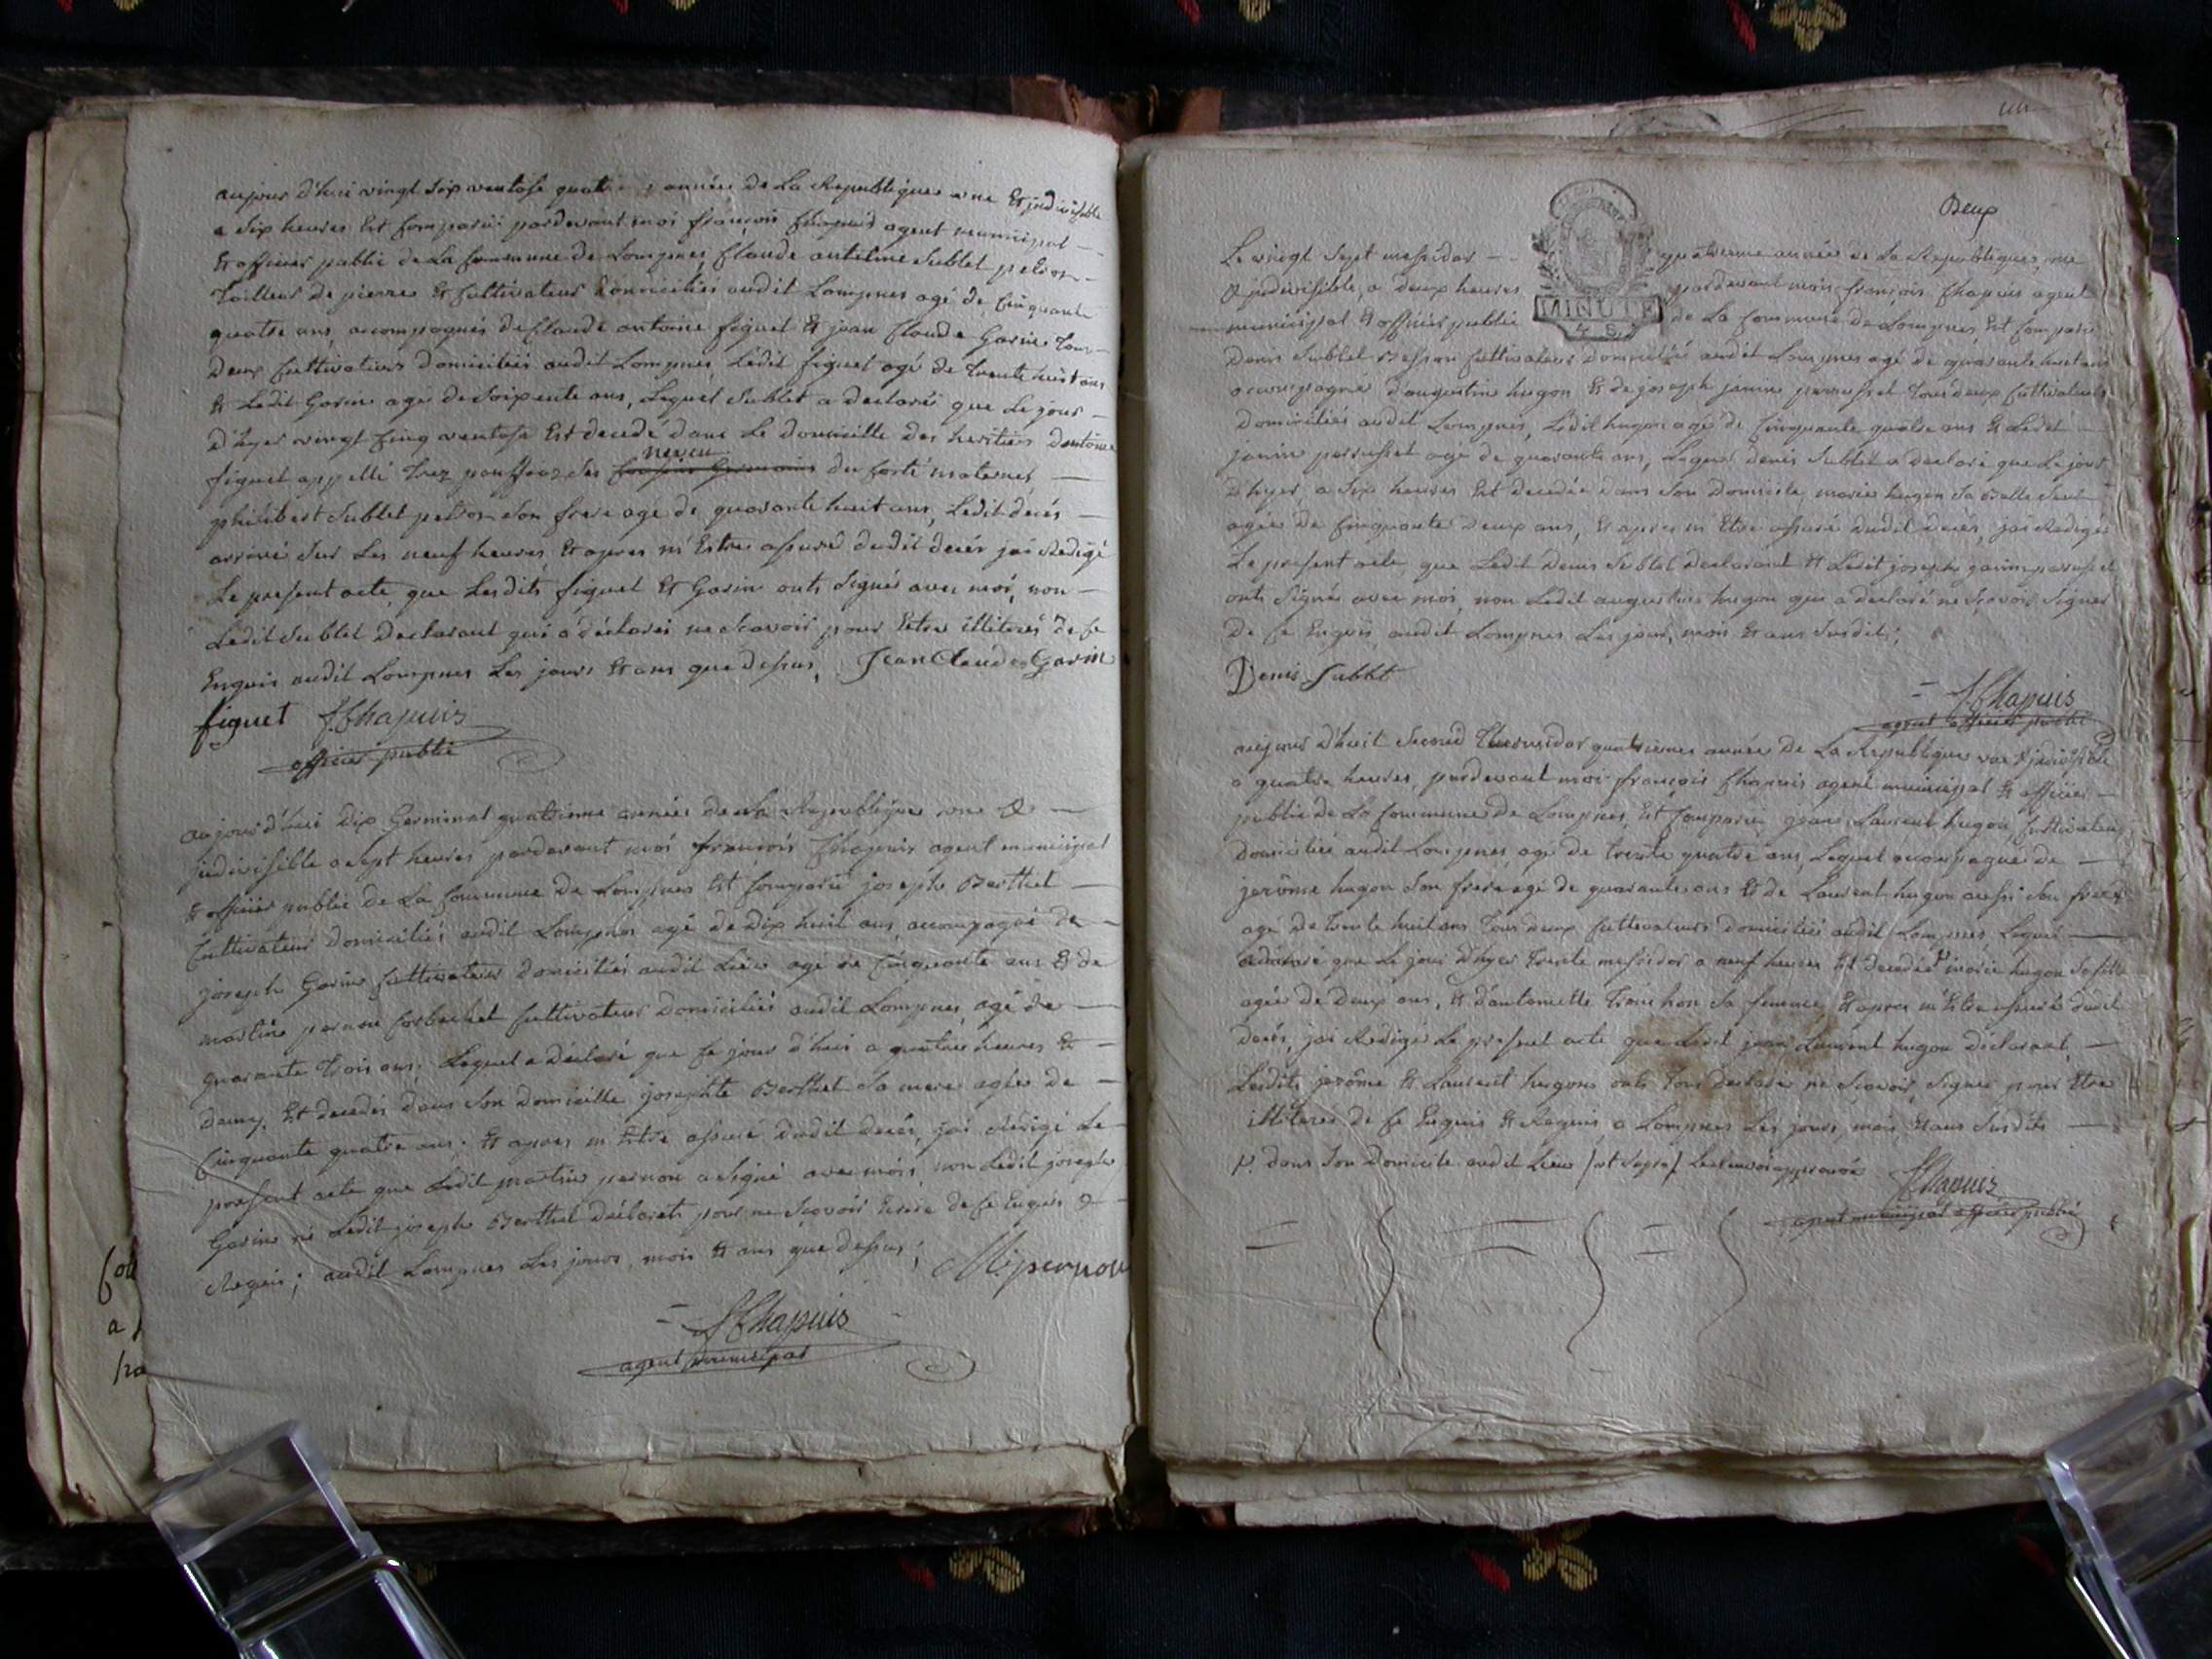 aujour d'hui vingt six ventose quatr année de La Republique une Et indivisible
a six heures Est Comparü pardevant moi françois Chapuis agent municipal
Et officier public de La Commune de Lompnes, Claude antelme Sublet pelion
Tailleur de pierre Et Cultivateur Domicilié audit Lompnes agé de Cinquante
quatre ans, accompagnés de Claude antoine figuet Et jean Claude Garin Tous
Deux Cultivateurs domiciliés audit Lompnes, Ledit figuet agé de trente huit ans
Et Ledit Garin agé de Soixente ans, Lequel Sublet a declaré que Le jour
d'hyer vingt Cinq ventose Est decedé dans Le domicille des heritiers dantoine
neveu
figuet appellé Ses Cousins Germains du Coté maternel
philibert Sublet pelion son frere agé de quarante huit ans, Ledit decés
arrivé Sur Les neuf heures, Et apres m'Estre assuré dudit decés jai Redigé
Le present acte, que Lesdits figuet Et Garin onts Signés avec moi, non
Ledit Sublet Declarant qui a déclaré ne Scavoir pour Estre illiteré de Ce
Enquis audit Lompnes Les jours Et ans que dessus, Jean Claude Garin
figuet f. Chapuis
officier public
aujourd'hui dix Germinal quatrieme année de La Republique une Et
indivisible a Sept heures pardevant moi françois Chapuis agent municipal
Et officier public de La Commune de Lompnes Est Comparü joseph Berthet
Cultivateur domicilié audit Lompnes agé de Dix huit ans, accompagné de
joseph Garin Cultivateur domicilié audit Lieu agé de Cinquante ans Et de
martin pernou Cultivateur Domicilié audit Lompnes, agé de
quarante trois ans, Lequel a déclaré que Ce jour d'hui a quatre heures Et
demy, Est decedée dans Son domicille josephte Berthet Sa mere agée de
Cinquante quatre ans; Et apres m'Estre assuré dudit decés, jai Redigé Le
present acte que Ledit martin pernou a Signé avec moi, non Ledit joseph
Garin ni Ledit joseph Berthet déclarants pour ne Scavoir Ecrire de Ce Enquis Et
Requis; audit Lompnes Les jours, mois Et ans que dessus; M. pernou
f. Chapuis
agent municipal
Deux
Le vingt Sept messidor quatrieme année de La Republique, une
Et indivisible, a deux heures pardevant moi françois Chapuis agent
MINUTE
municipal Et officier public de La Commune de Lompnes, Est Comparü
4 S.
Denis Sublet Cultivateur Domicilié audit Lompnes agé de quarante huit ans
accompagné d'augustin hugon Et de joseph janin perrusset Tous deux Cultivateurs
domiciliés audit Lompnes, Ledit hugon agé de Cinquante quatre ans Et Ledit
janin perrusset agé de quarante ans, Lequel denis Sublet a declaré que Le jour
d'hyer, a Six heures Est decedée dans Son Domicile, marie hugon Sa Belle Seur
agée de Cinquante Deux ans, Et apres m'Etre assuré dudit decés, jai Redigé
Le present acte, que Ledit Denis Sublet Declarant Et Ledit joseph janin perrusset
onts Signés avec moi, non Ledit augustin hugon qui a declaré ne Scavoir Signer
de Ce Enquis, audit Lompnes Les jour, mois Et ans Susdits;
Denis Sublet
f. Chapuis
agent officier public
aujour d'huit Second Thermidor quatrieme année de La Republique une Et indivisible
a quatre heures, pardevant moi françois Chapuis agent municipal Et officier
public de La Commune de Lompnes, Est Comparü jean Laurent hugon Cultivateur
domicilié audit Lompnes, agé de trente quatre ans, Lequel accompagné de
jerôme hugon Son frere agé de quarante ans Et de Laurent hugon aussi Son frere
agé de trente huit ans Tous deux Cultivateurs domiciliés audit Lompnes, Lequel
a declaré que Le jour d'hyer Trente messidor a neuf heures Est decedée marie hugon Sa fille
agée de Deux ans, Et d'antoinette Sa femme, Et apres m'Etre assuré dudit
decés, jai Redigé Le present acte que Ledit jean Laurent hugon declarant,
Lesdits jerôme Et Laurent hugons onts Tous declarés ne Scavoir Signer pour Etre
illiterés de Ce Enquis Et Requis, a Lompnes Les jours, mois, Et ans Susdits
dans Son Domicile audit Lieu Le Renvoi approuvé f. Chapuis
agent municipal officier public